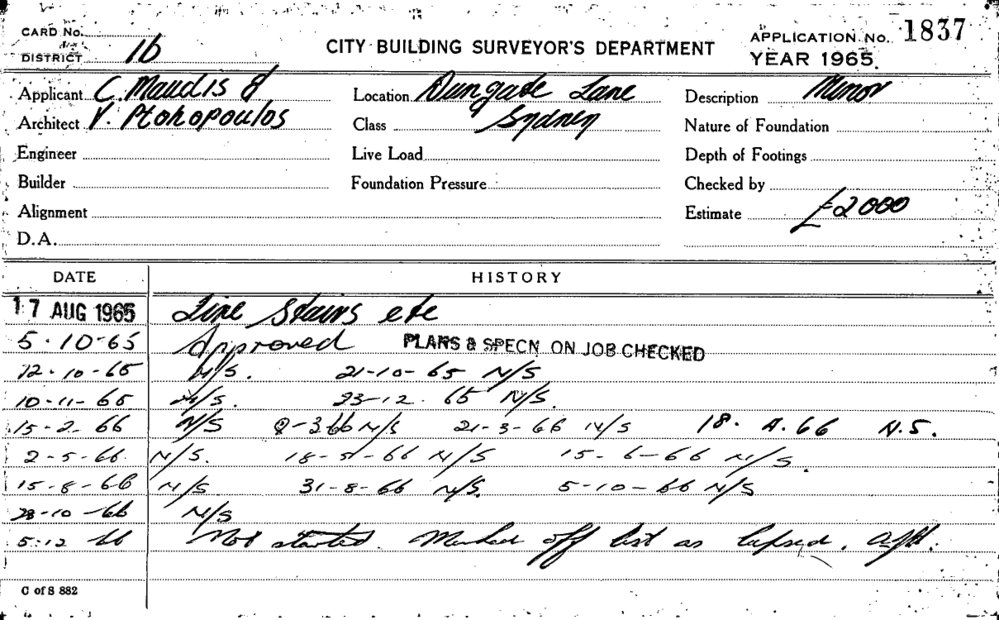 CARD No. CITY BUILDING SURVEYOR'S DEPARTMENT APPLICATION No. 1837
DISTRICT 1b YEAR 1965.
Applicant C. Maudis & Location Dungate Lane Description Minor
Architect V. Ptohopoulos Class Sydney Nature of Foundation
Engineer Live Load Depth of Footings
Builder Foundation Pressure Checked by
Alignment Estimate £2000
D.A.
DATE HISTORY
17 AUG 1965 Fire Stairs etc
5-10-65 Approved PLANS & SPECN ON JOB CHECKED
12-10-65 N/S. 21-10-65 N/S
10-11-65 N/S. 23-12-65 N/S.
15-2-66 N/S 9-3-66 N/S 21-3-66 N/S 18. 4.66 N.S.
2-5-66. N/S. 18-5-66 N/S 15-6-66 N/S.
15-8-66 N/S 31-8-66 N/S. 5-10-66 N/S
28-10-66 N/S
5.12 66 Not started. Marked off list as lapsed.
C of S 882